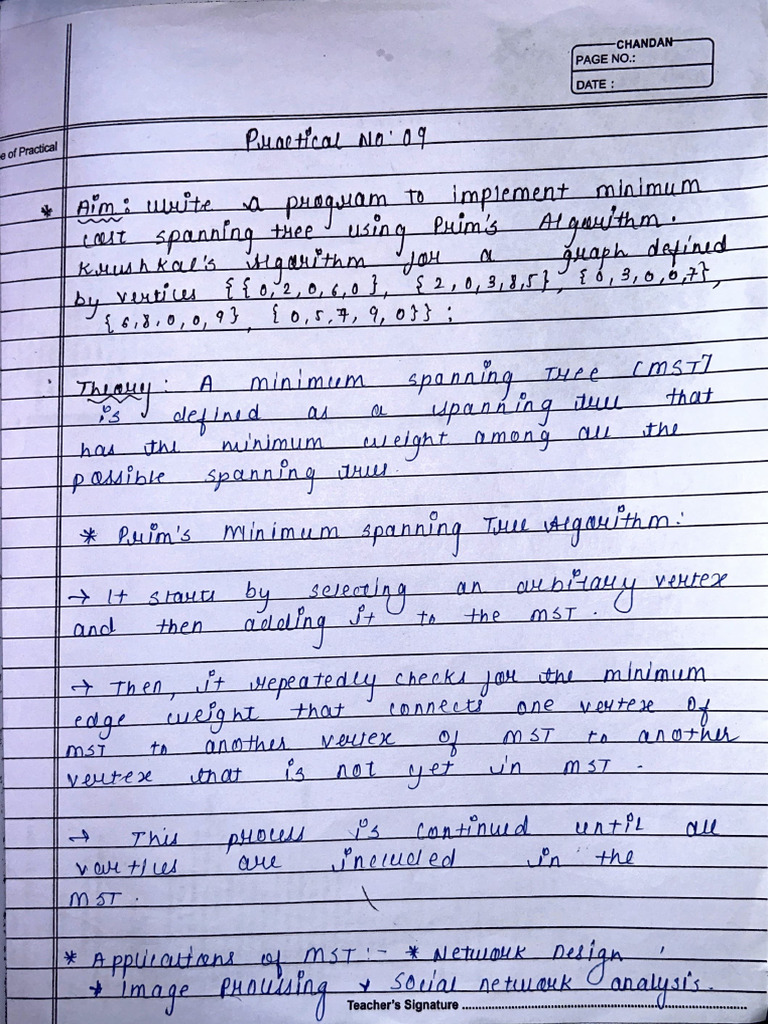 CHANDAN
PAGE NO.:
DATE :
e of Practical
Practical No: 09
* Aim: Write a program to implement minimum
cost spanning tree using Prim's Algorithm.
Krushkal's Algorithm for a graph defined
by vertices {{0,2,0,6,0}, {2,0,3,8,5}, {0,3,0,0,7},
{6,8,0,0,9}, {0,5,7,9,0}};
Theory: A minimum spanning Tree (MST)
is defined as a spanning tree that
has the minimum weight among all the
possible spanning trees.
* Prim's Minimum spanning Tree Algorithm:
→ It starts by selecting an arbitary vertex
and then adding it to the MST.
→ Then, it repeatedly checks for the minimum
edge weight that connects one vertex of
MST to another vertex of MST to another
vertex that is not yet in MST.
→ This process is continued until all
vartices are included in the
MST.
* Applications of MST:- * Network Design
* Image Processing * Social network analysis.
Teacher's Signature